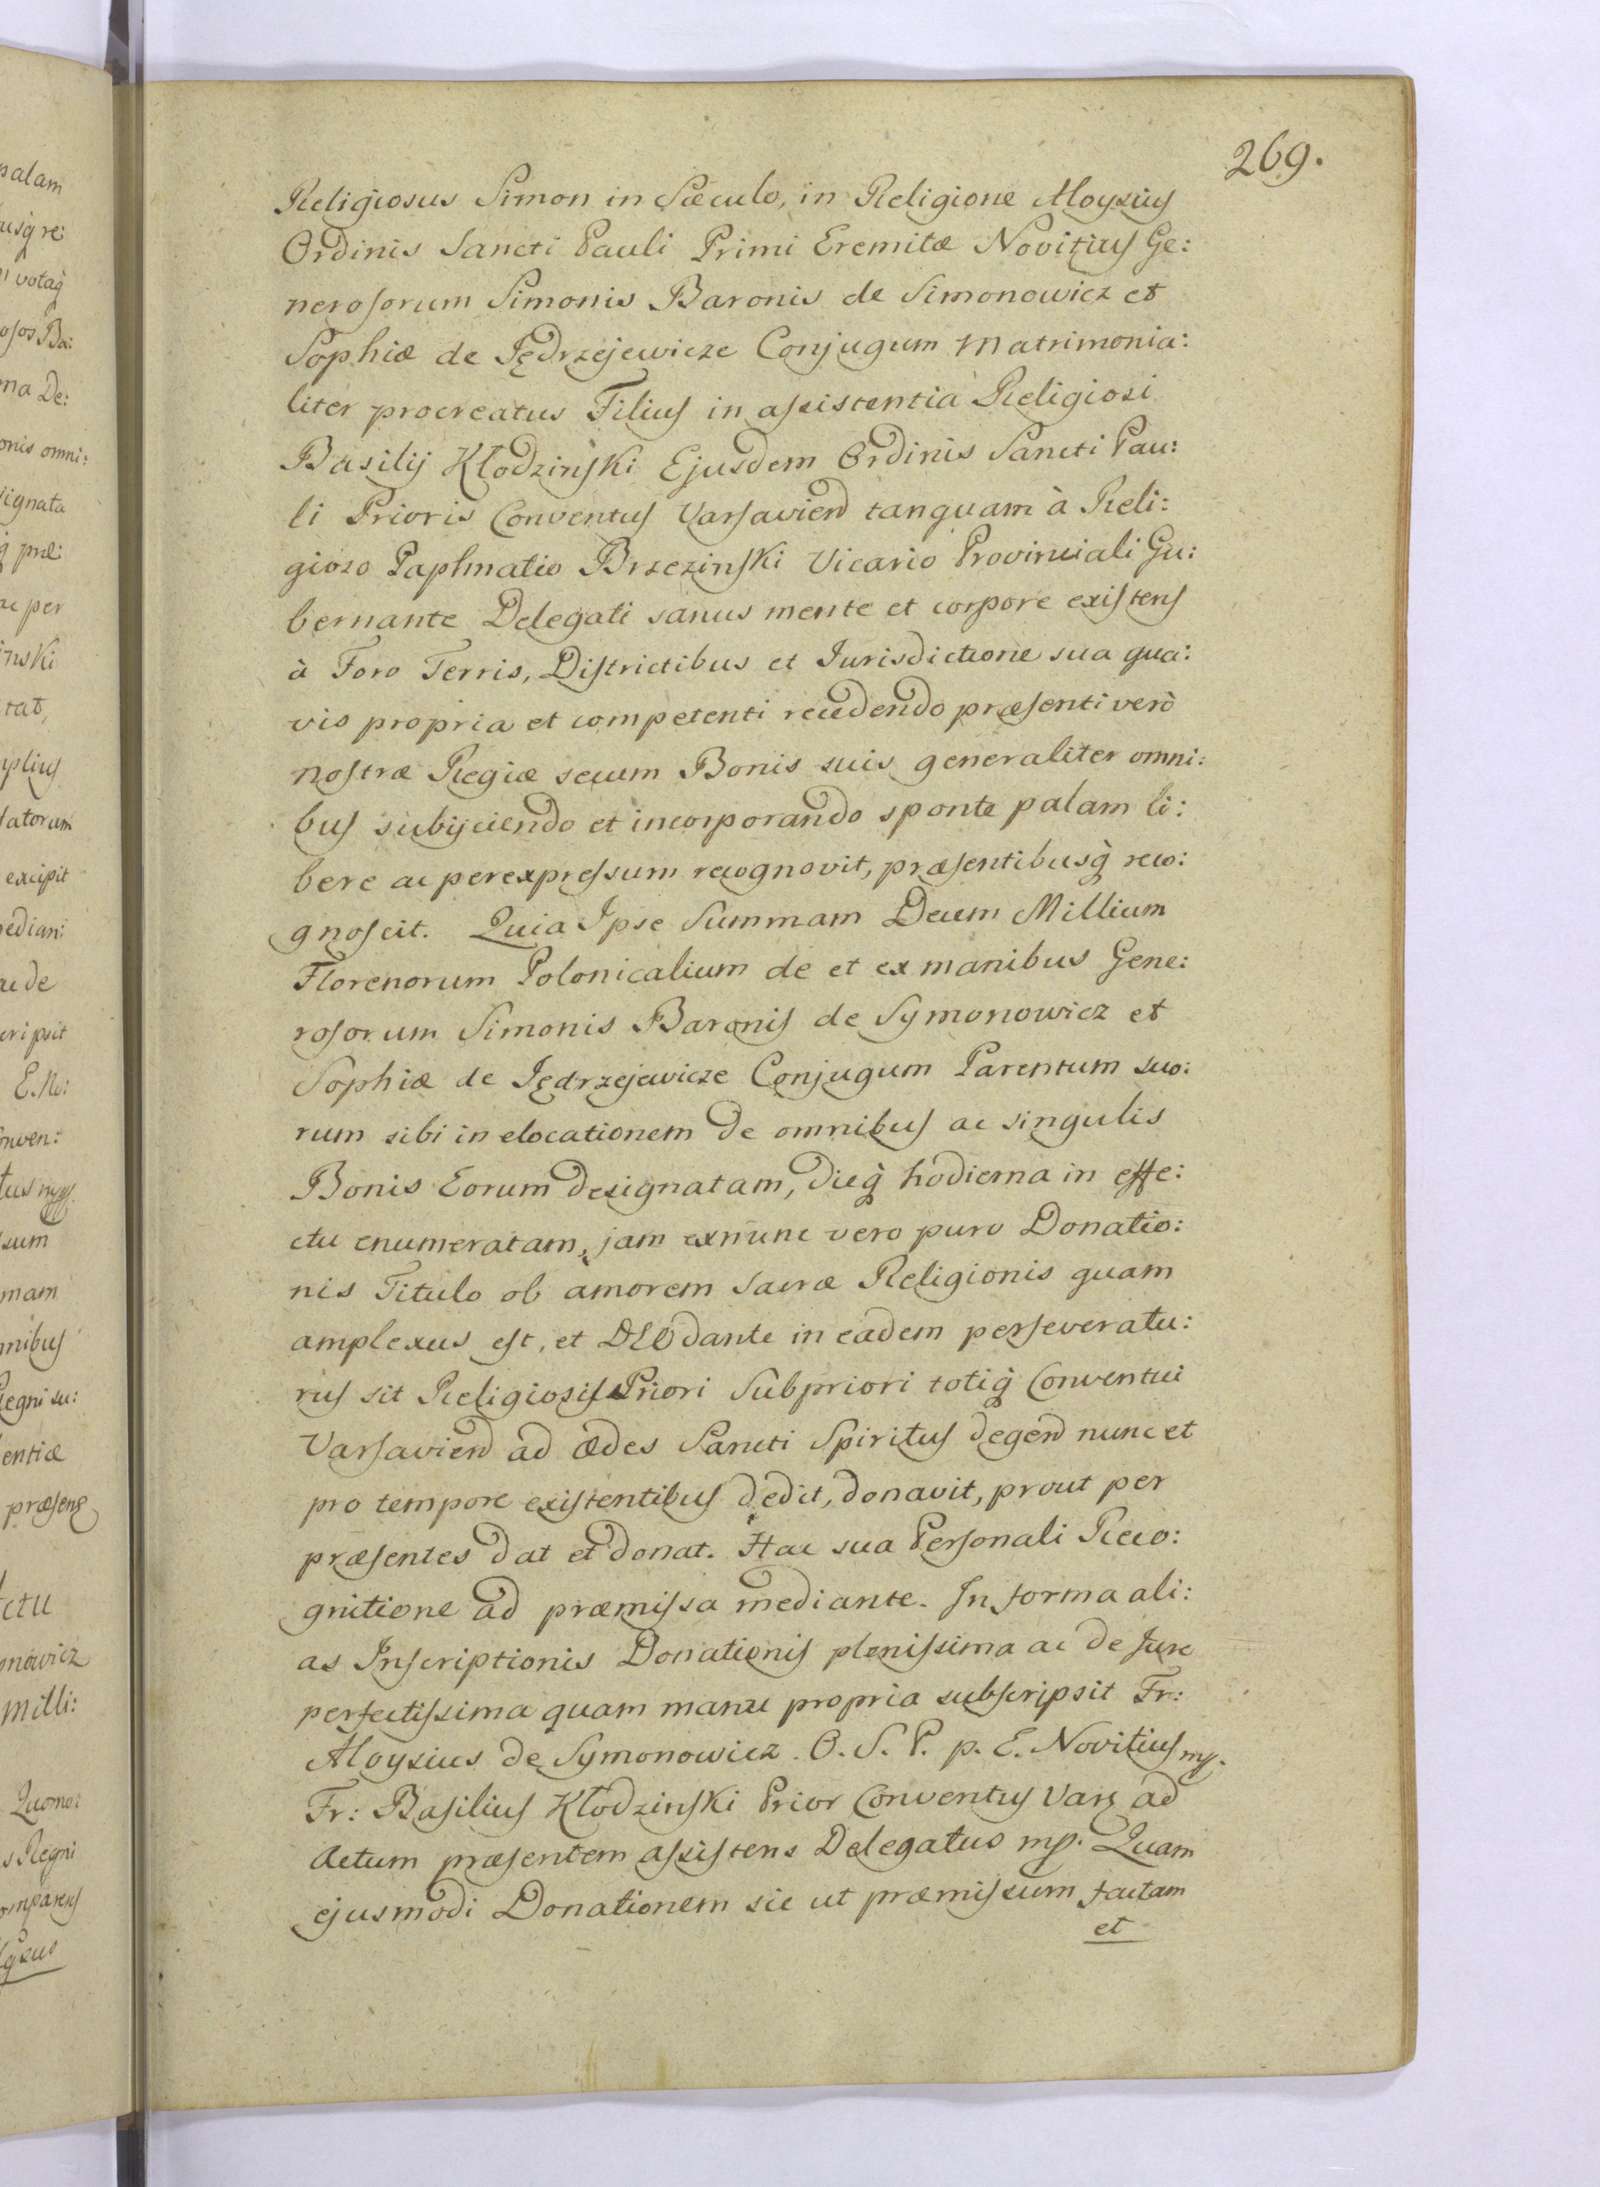 269.
Religiosus Simon in Sæculo, in Religione Aloysius
Ordinis Sancti Pauli Primi Eremitæ Novitius Ge:
nerosorum Simonis Baronis de Simonowicz et
Sophiæ de Jędrzejewicze Conjugum Matrimonia:
liter procreatus Filius in assistentia Religiosi
Basilij Kłodzinski Ejusdem Ordinis Sancti Pau:
li Prioris Conventus Varsavien tanquam à Reli:
gioso Paphnatio Brzezinski Vicario Provinciali Gu:
bernante Delegati sanus mente et corpore existens
à Foro Terris, Districtibus et Jurisdictione sua qua:
vis propria et competenti recedendo præsenti verò
nostræ Regiæ secum Bonis suis generaliter omni:
bus subijciendo et incorporando sponte palam li:
bere ac perexpressum recognovit, præsentibusq̀ reco:
gnoscit. Quia Ipse Summam Decem Millium
Florenorum Polonicalium de et ex manibus Gene:
rosorum Simonis Baronis de Symonowicz et
Sophiæ de Jędrzejewicze Conjugum Parentum suo:
rum sibi in elocationem de omnibus ac singulis
Bonis Eorum designatam, dieq̀ hodierna in effe:
ctu enumeratam, jam exnunc vero puro Donatio:
nis Titulo ob amorem Sacræ Religionis quam
amplexus est, et DEO dante in eadem perseveratu:
rus sit Religiosis Priori Subpriori totiq̀ Conventui
Varsavien ad Ædes Sancti Spiritus degen nunc et
pro tempore existentibus dedit, donavit, prout per
præsentes dat et donat. Hac sua Personali Reco:
gnitione ad præmissa mediante. In forma ali:
as Inscriptionis Donationis plenissima ac de Jure
perfectissima quam manu propria subscripsit Fr:
Aloysius de Symonowicz O. S. P. p. E. Novitius mp.
Fr: Basilius Kłodzinski Prior Conventus Vars ad
Actum præsentem assistens Delegatus mp. Quam
ejusmodi Donationem sic ut præmissum factam
et
palam
usq̀ re:
votaq̀
osos Ba:
ma De:
onis omni:
signata
q̀ præ:
ac per
inski
tat,
mplius
latorum
excipit
edian:
ac de
cripsit
E. No:
onven:
tus
sum
mam
nibus
Regni su:
entiæ
præsens
ctu
nowicz
milli:
Quomo:
s Regni
omparens